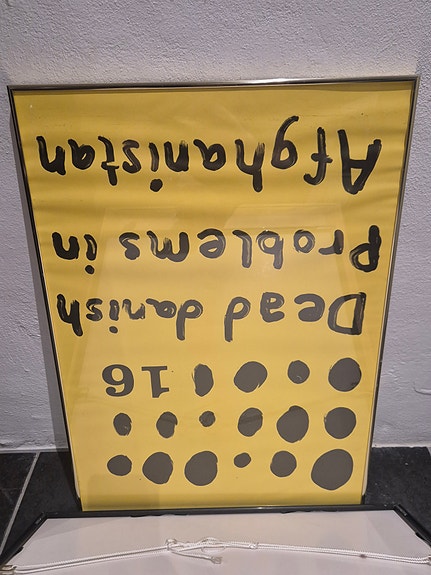 16
Dead danish
Problems in
Afghanistan